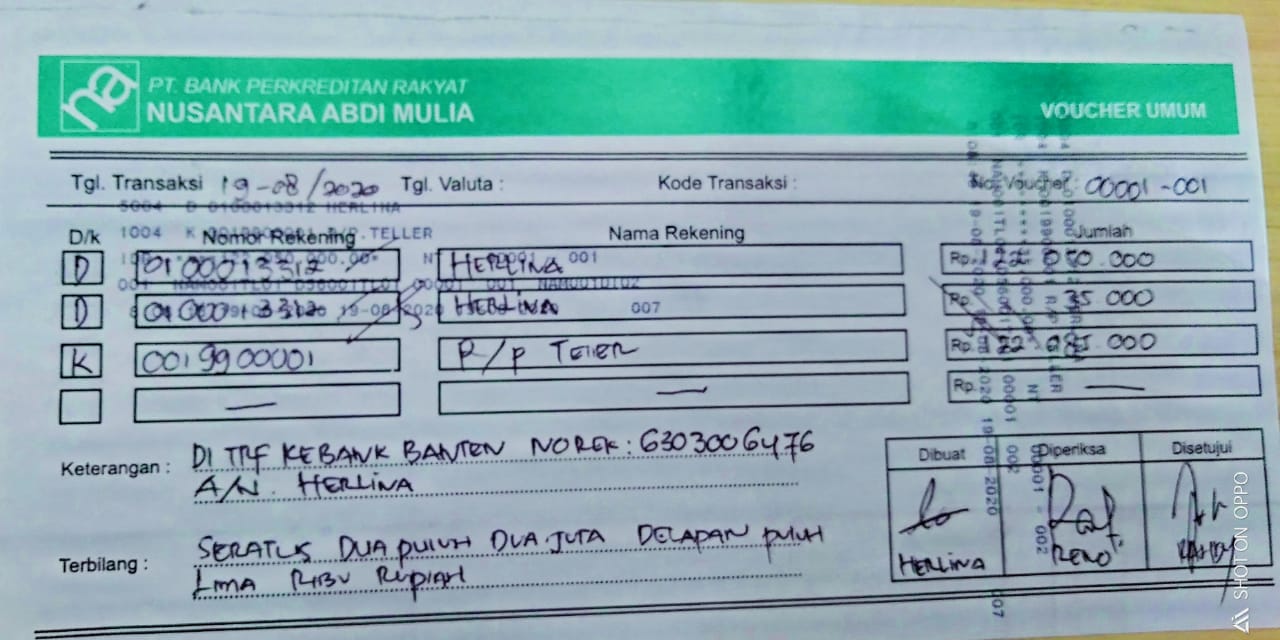 na PT. BANK PERKREDITAN RAKYAT
NUSANTARA ABDI MULIA
VOUCHER UMUM
Tgl. Transaksi 19-08/2020 Tgl. Valuta : Kode Transaksi : No. Voucher : 00001-001
5004 D 0100013312 HERLINA
1004 K TELLER
D/k Nomor Rekening Nama Rekening Jumlah
D 0100013312 HERLINA Rp. 122 050.000
001
D 0100013312 HERLINA Rp. 35 000
19-08-2020 007
K 0019900001 R/P TELLER Rp. 122 085 000
— — Rp. —
Keterangan : DI TRF KEBANK BANTEN NOREK : 6303006476
A/N. HERLINA
Terbilang : SERATUS DUA PULUH DUA JUTA DELAPAN PULUH
LIMA RIBU RUPIAH
Dibuat Diperiksa Disetujui
HERLINA RENO
SHOT ON OPPO